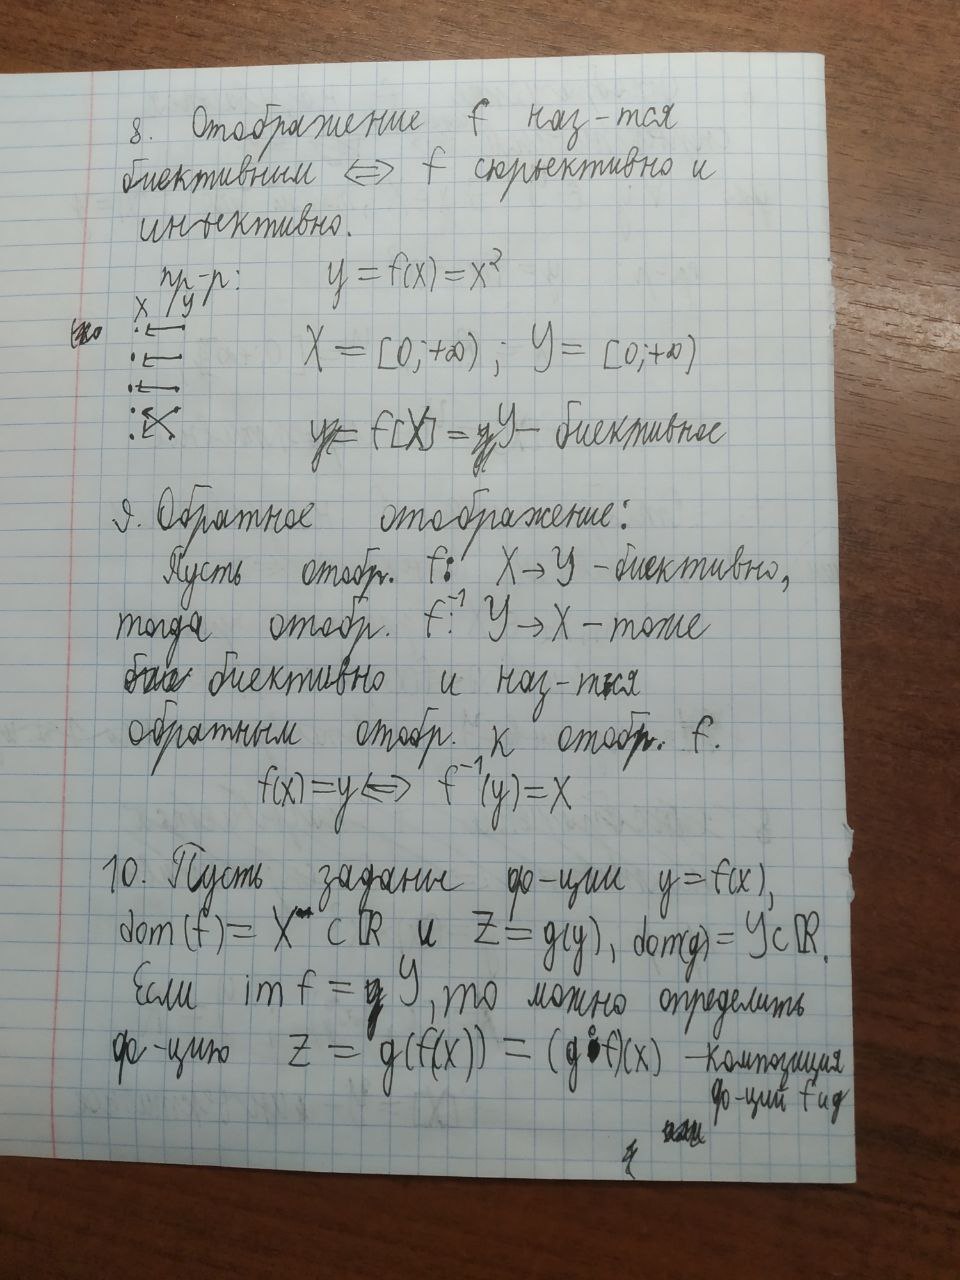 8. Отображение f наз-тся
биективним <=> f сюръективно и
инъективно.
пр-р: y = f(x) = x²
X Y
X = [0;+∞) ; Y = [0;+∞)
f[X] = Y - биективное
9. Обратное отображение:
Пусть отобр. f: X→Y - биективно,
тогда отобр. f⁻¹: Y→X - тоже
биективно и наз-тся
обратным отобр. к отобр. f.
f(x) = y <=> f⁻¹(y) = x
10. Пусть заданы ф-ции y = f(x),
dom(f) = X ⊂ ℝ и Z = g(y), dom(g) = Y ⊂ ℝ.
Если im f = Y, то можно определить
ф-цию Z = g(f(x)) = (g∘f)(x) - композиция
ф-ций f и g